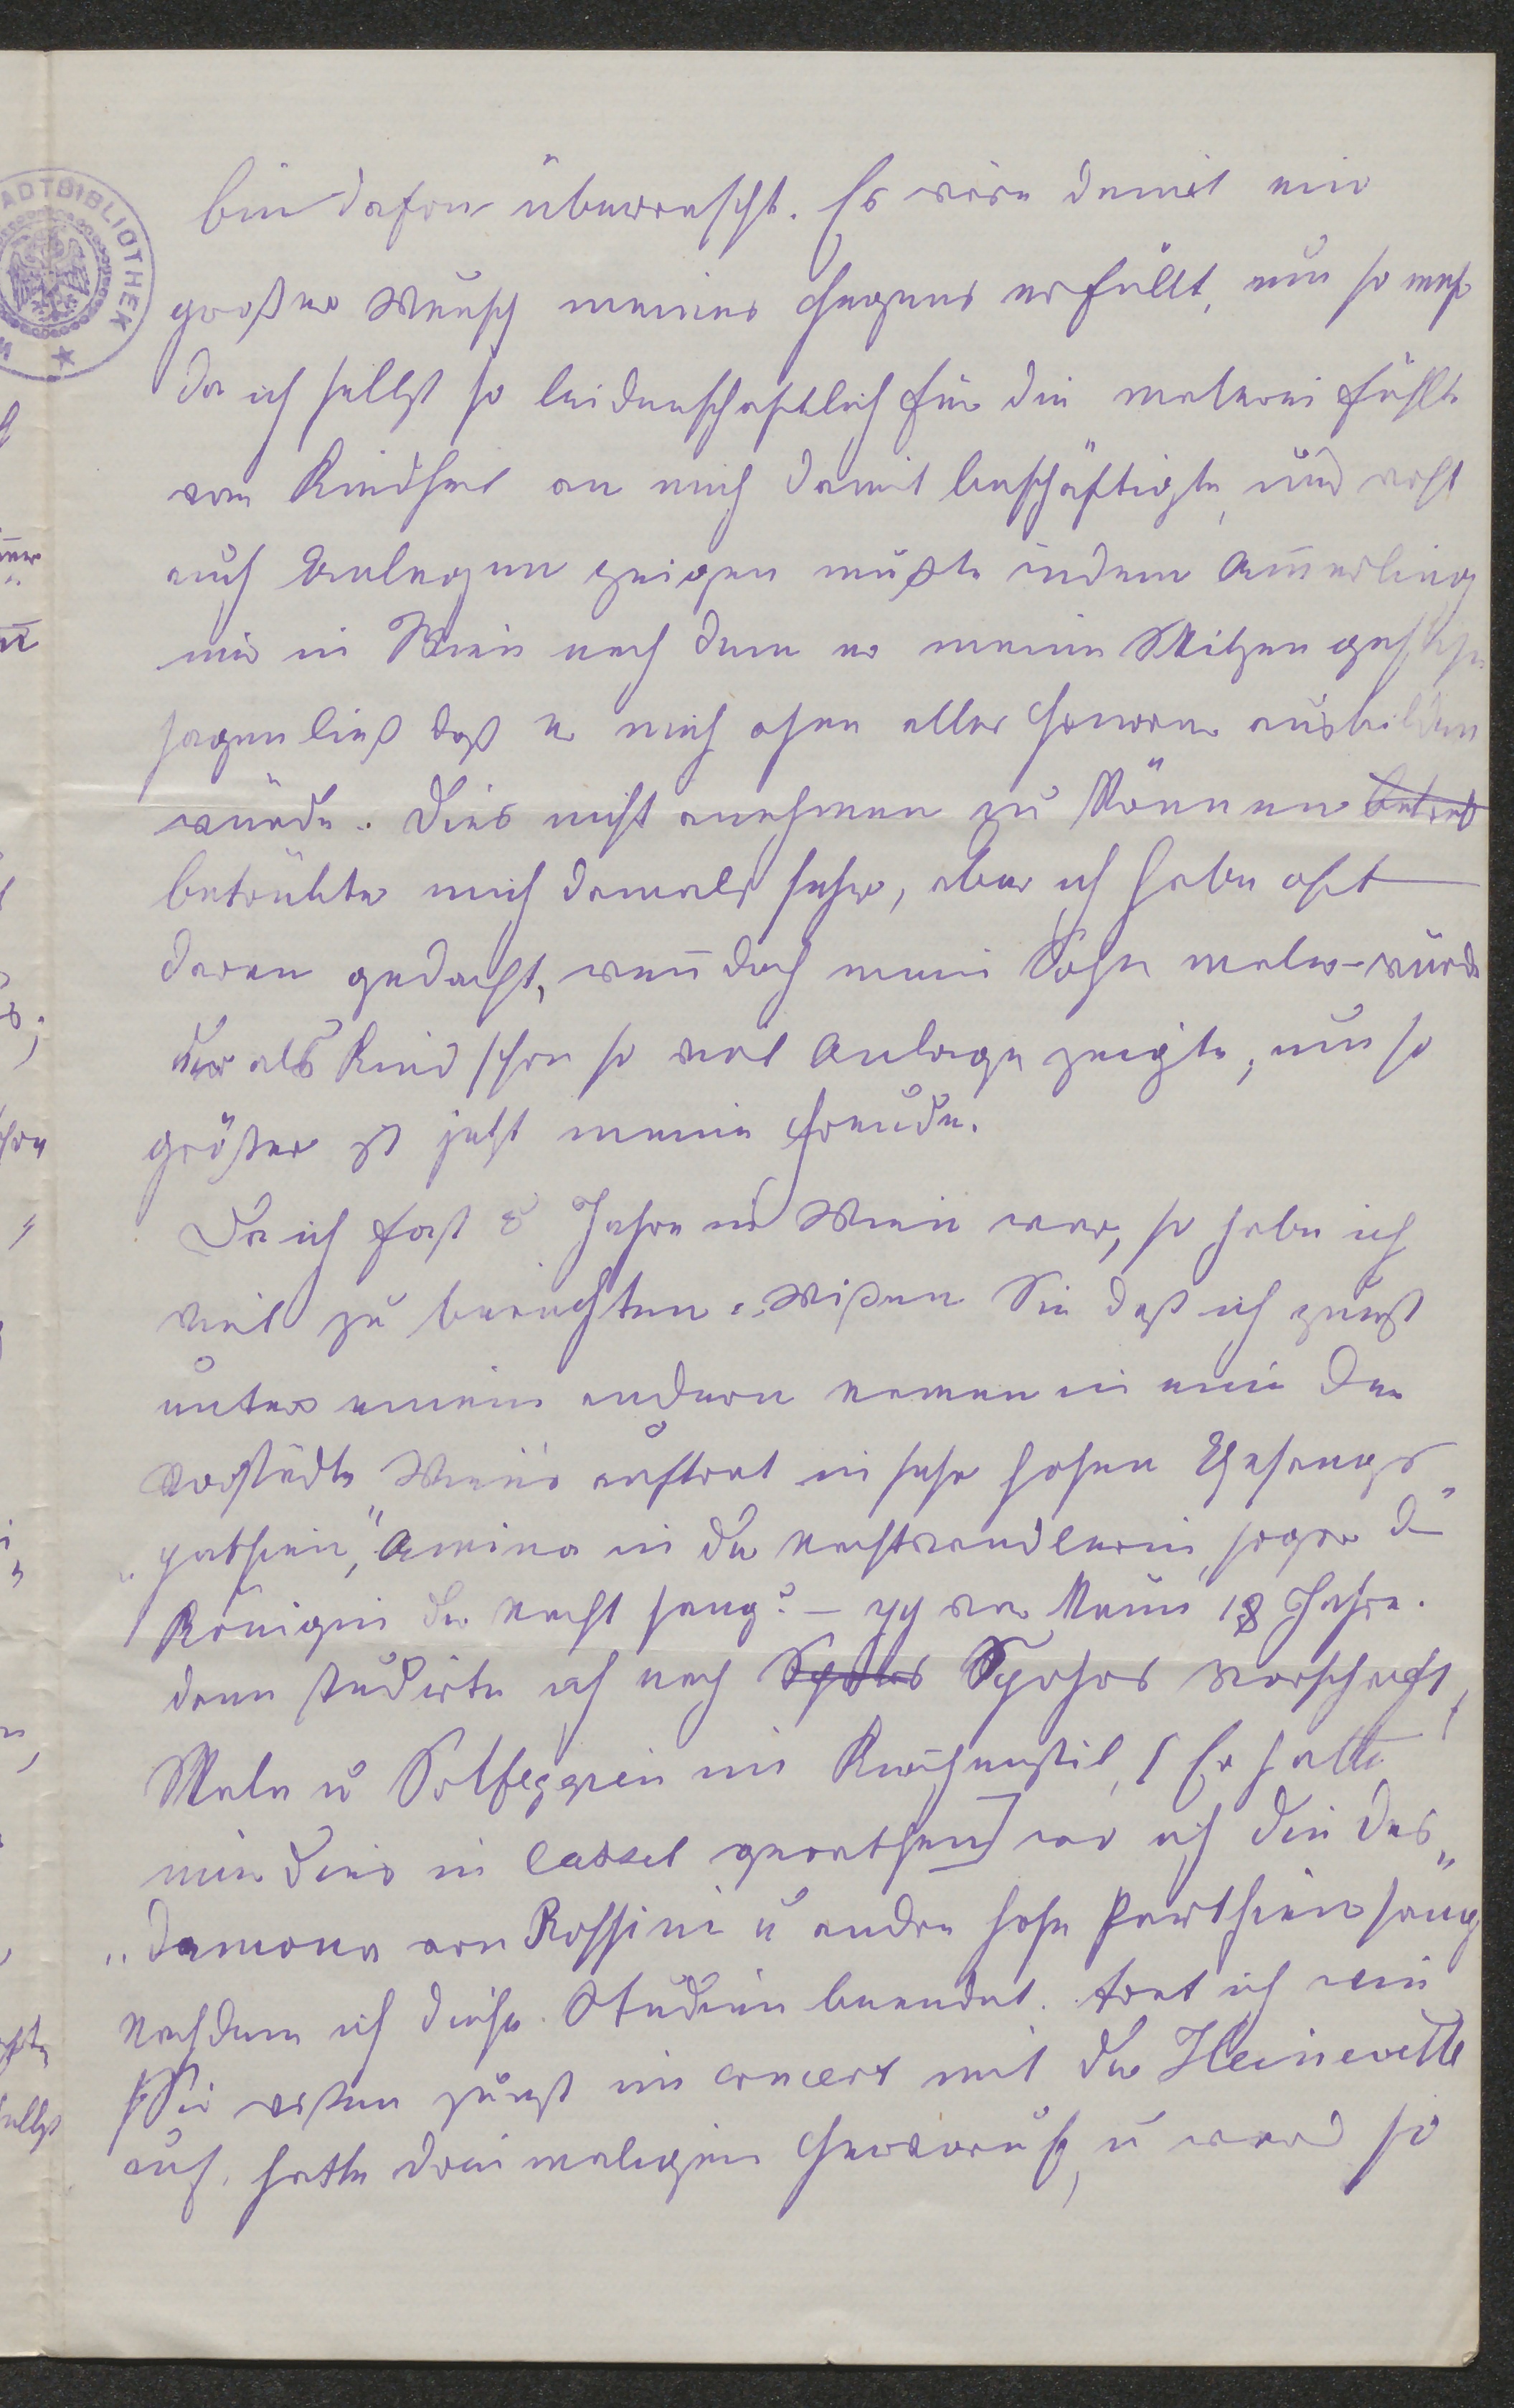 bin daher überrascht. Es wäre damit ein
großer Wunsch meines Herzens erfüllt, um so mehr
da ich selbst so leidenschaftlich für die malerei fühlte
von Kindheit an mich damit beschäftigte, und wohl
auch Anlagen zeigen mußte indem Am̅erling
mir in Wien nach dem er meine Skitzen gesehen
sagen ließ daß er mich ohne alles Honorar ausbilden
würde. Dies nicht annehmen zu können betrüb
betrübte mich damals sehr, aber ich habe oft
daran gedacht, wen̅ doch mein Sohn maler würde
der als Kind schon so viel Anlage zeigte, um so
größer ist jetzt meine Freude.
Da ich fast 8 Jahre in Wien war, so habe ich
viel zu berichten. Wißen Sie daß ich zuerst
unter einem andern namen in eine der
Vorstädte Wien's auftrat in sehr hohen Gesangs
"pathien," Amina in der Nachtwandlerin, sogar d
Königin der Nacht sang? – ich war kaum 18 Jahre.
dann studirte ich nach Sphors Spohrs vorschrift,
Skala u Solfeggien im Kirchenstil, [Er hatte
mir dies in Cassel gerathen] wo ich die Des"
"damona von Rossini u andre hohe Parthien sang
Nachdem ich diese Studien beendet. trat ich wie
Sie wissen zuerst im Concert mit der Heinevette
auf, hatte dreimaligen Hervorruf, u ward so
ADTBIBLIOTHEK